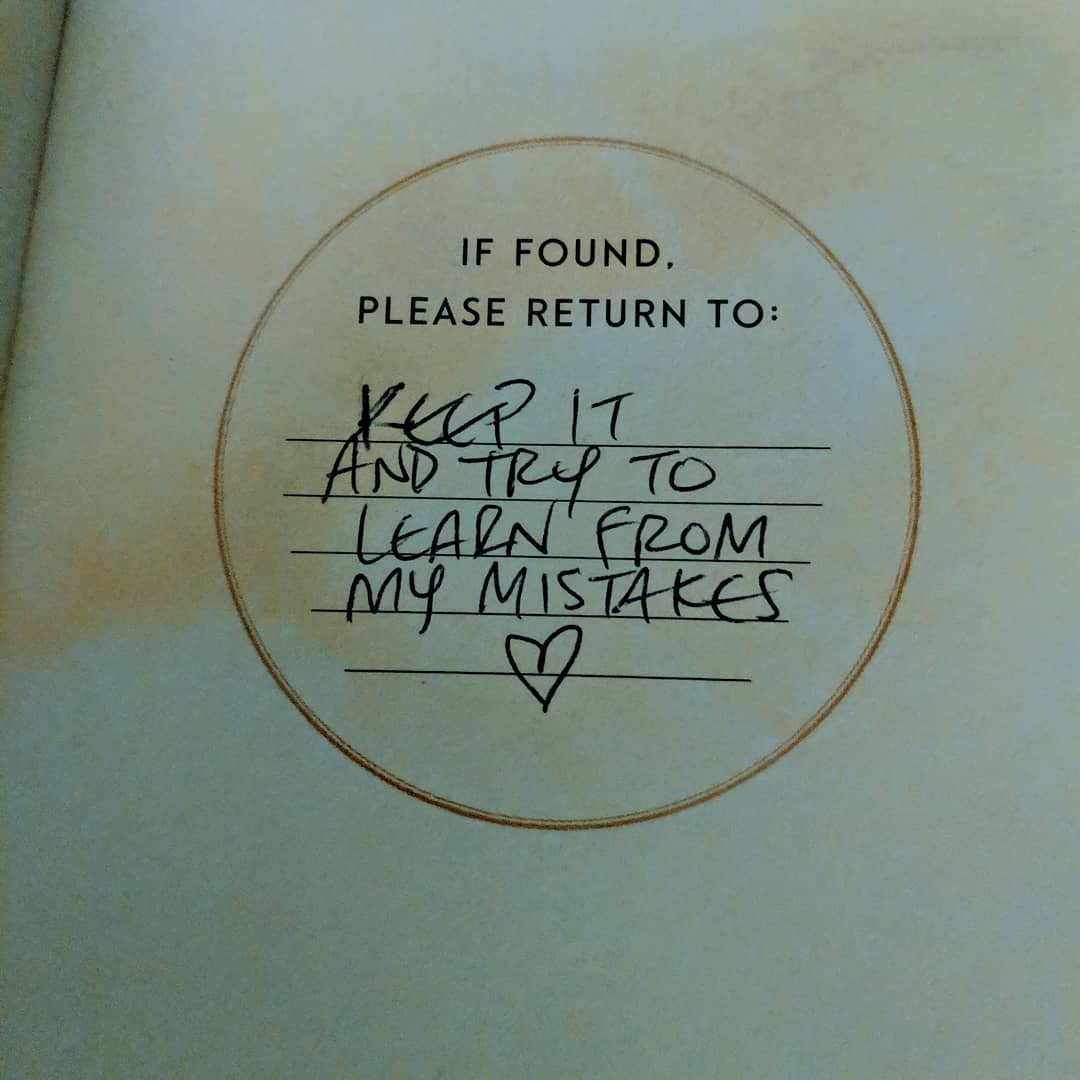 IF FOUND,
PLEASE RETURN TO:
KEEP IT
AND TRY TO
LEARN FROM
MY MISTAKES